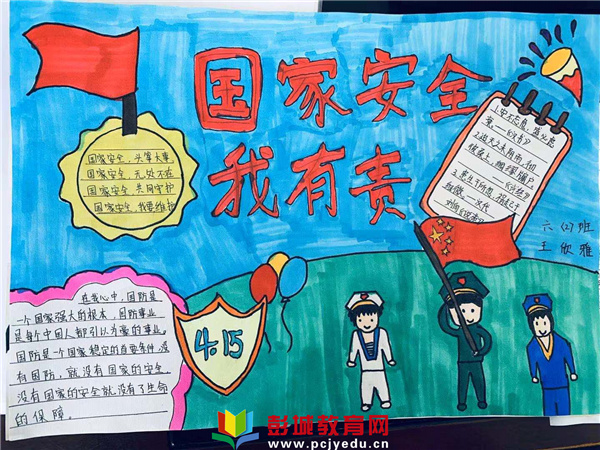 国家安全
我有责
国家安全，头等大事
国家安全，无处不在
国家安全，共同守护
国家安全，我要维护
1.安不忘危，盛必虑
衰。——《汉书》
六（2）班
王欣雅
4.15
在我心中，国防是
一个国家强大的根本，国防事业
是每个中国人都引以为豪的事业。
国防是一个国家稳定的首要条件，没
有国防，就没有国家的安全
没有国家的安全就没有了生命
的保障。
彭城教育网
www.pcjyedu.cn